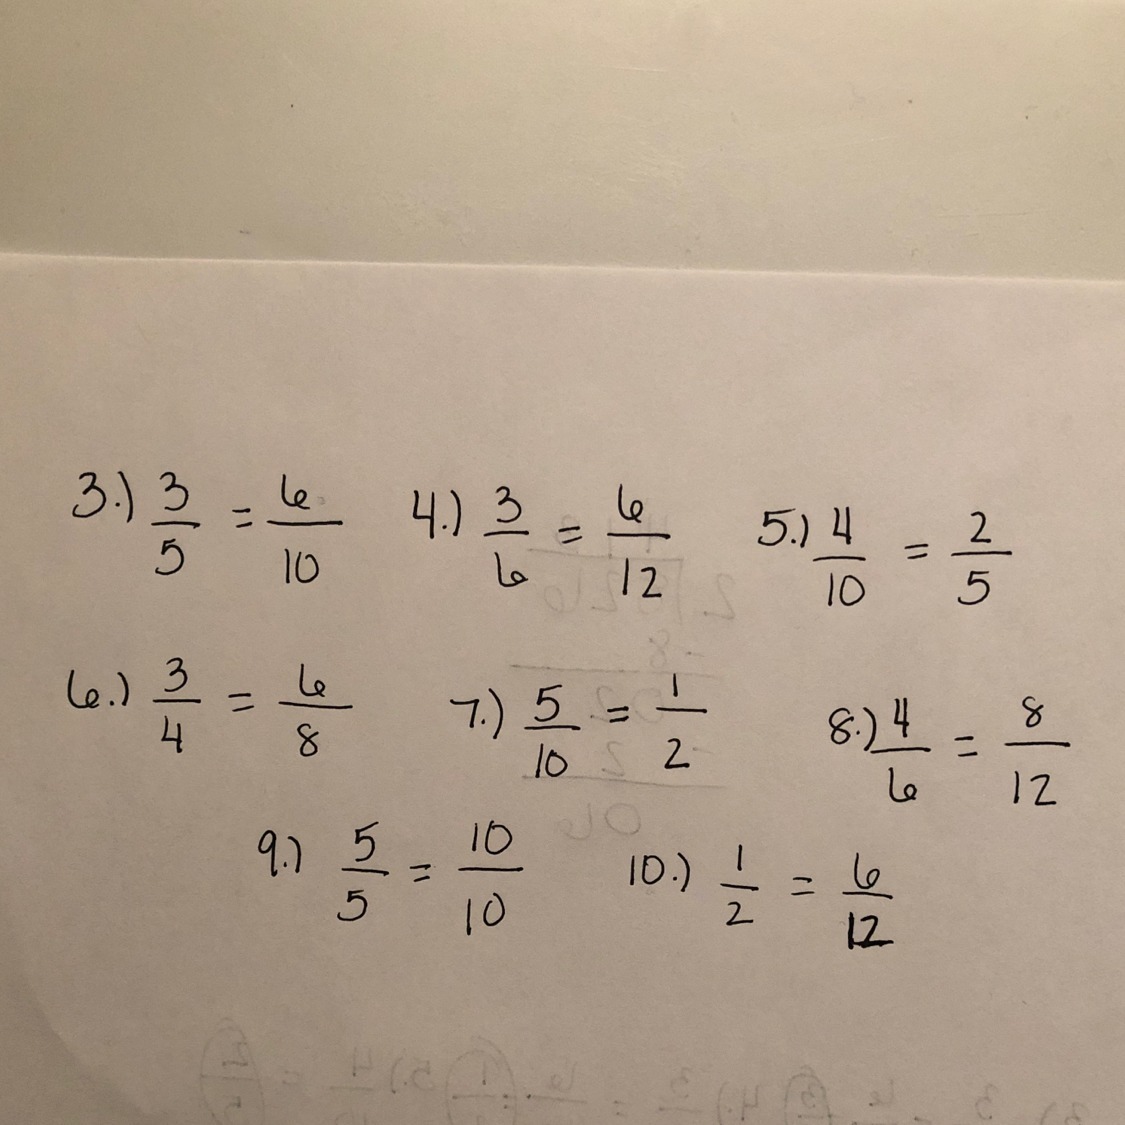 3.) 3/5 = 6/10 4.) 3/6 = 6/12 5.) 4/10 = 2/5
6.) 3/4 = 6/8 7.) 5/10 = 1/2 8.) 4/6 = 8/12
9.) 5/5 = 10/10 10.) 1/2 = 6/12